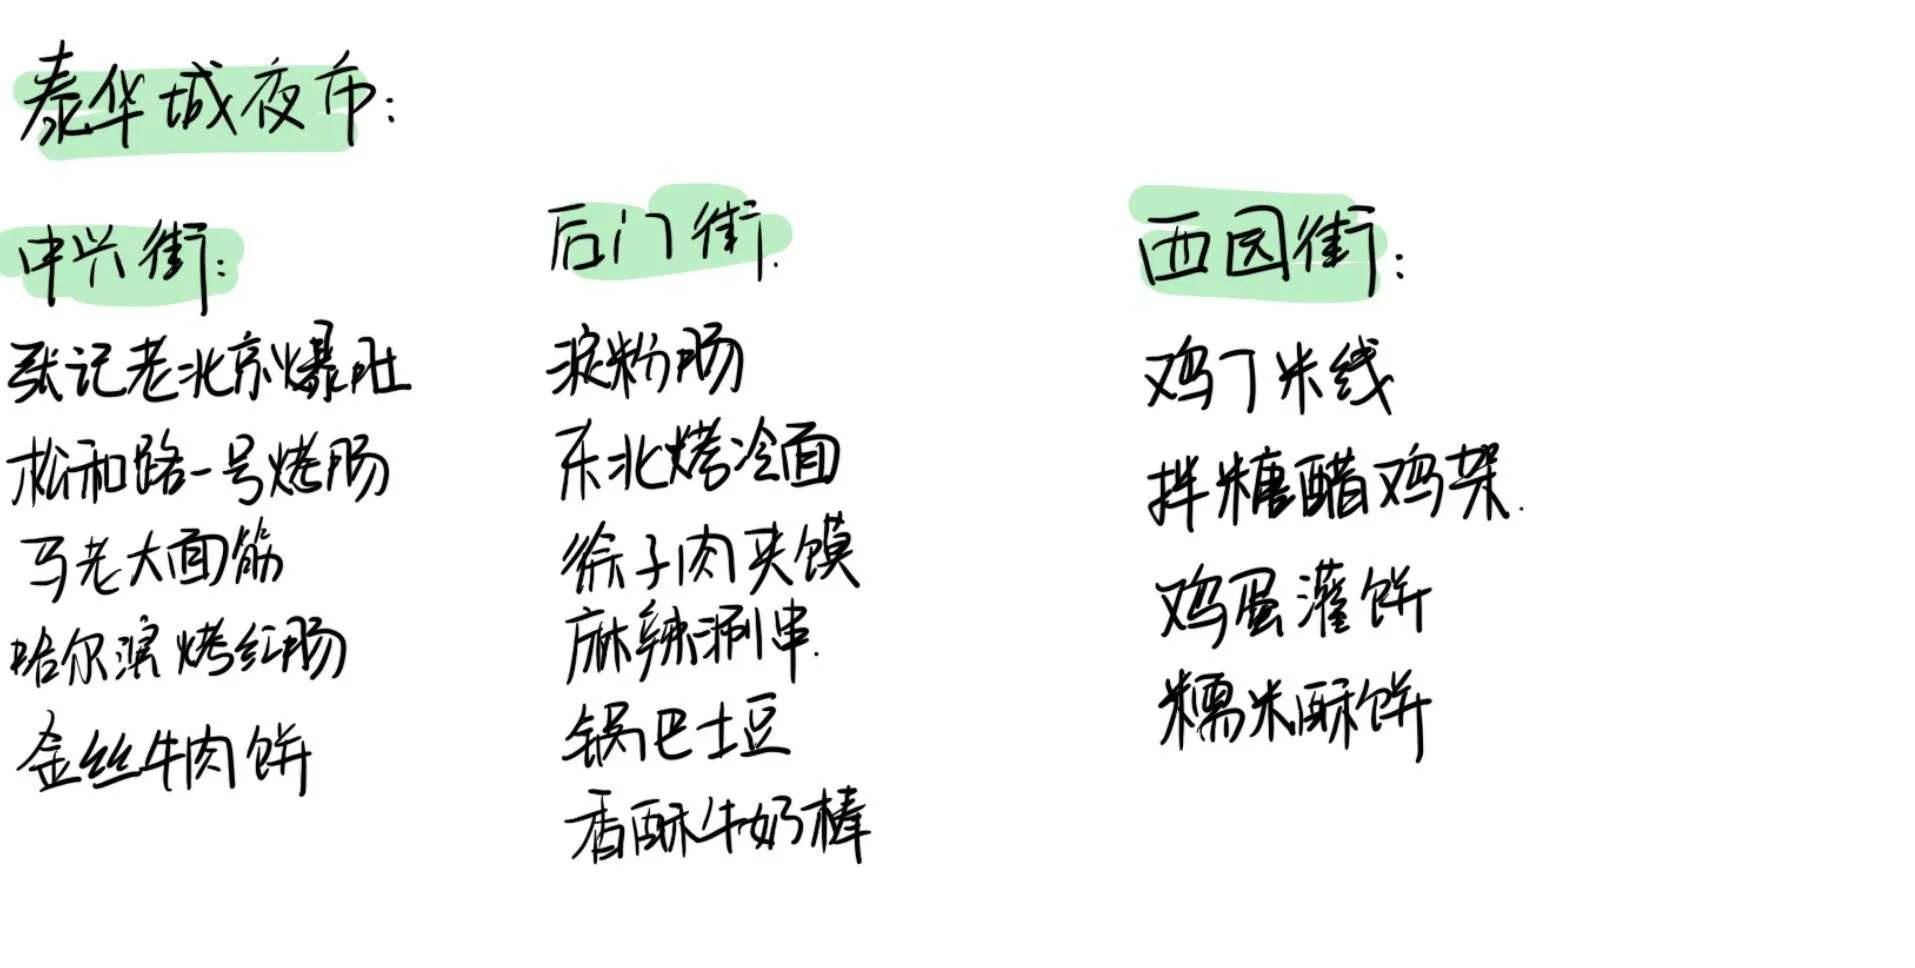 泰华城夜市:
中兴街:
张记老北京爆肚
松和路一号烤肠
马老大面筋
哈尔滨烤红肠
金丝牛肉饼
后门街.
淀粉肠
东北烤冷面
徐子肉夹馍
麻辣涮串.
锅巴土豆
香酥牛奶棒
西园街:
鸡丁米线
拌糖醋鸡架.
鸡蛋灌饼
糯米酥饼